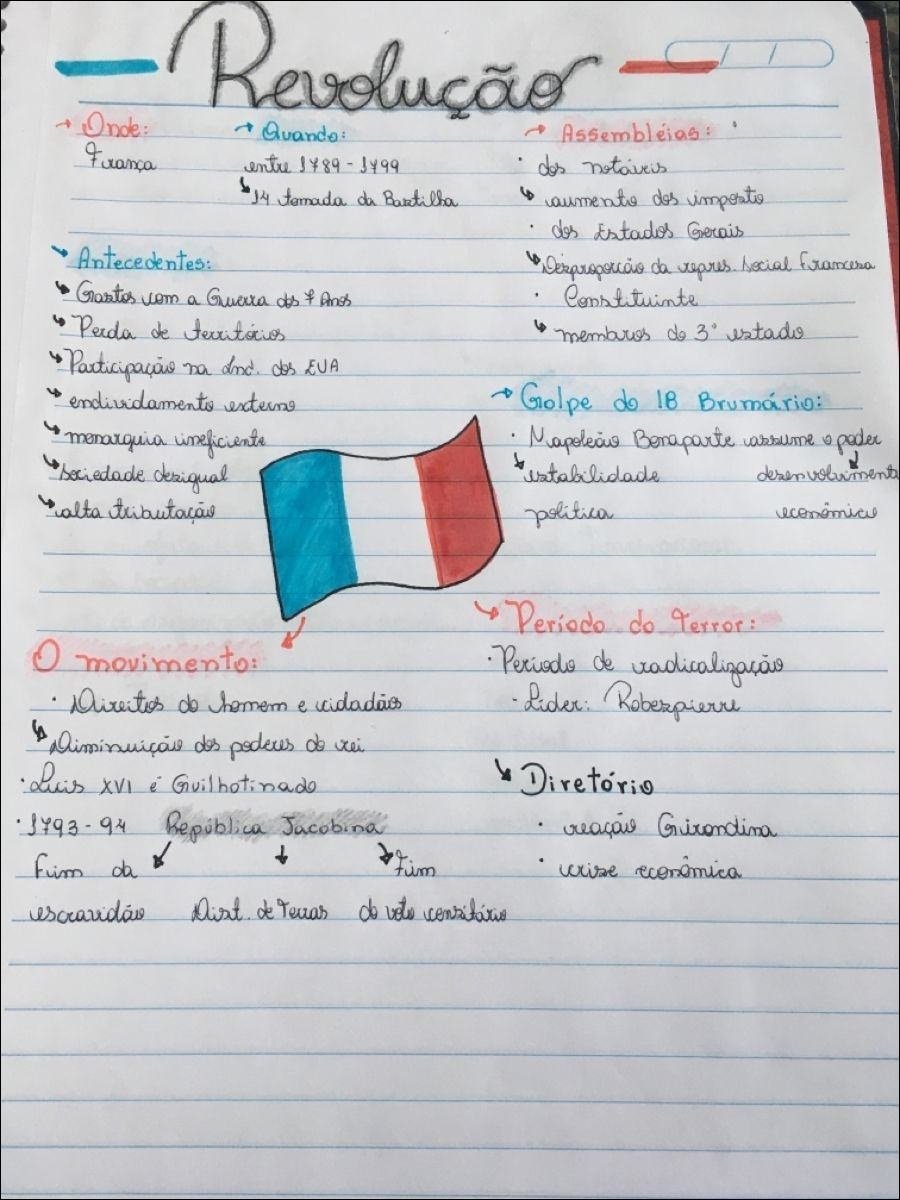 Revolução
→ Onde:
França
→ Quando:
entre 1789 - 1799
↳ 14 tomada da Bastilha
→ Antecedentes:
↳ Gastos com a Guerra dos 7 Anos
↳ Perda de territórios
↳ Participação na Ind. dos EUA
↳ endividamento externo
↳ monarquia ineficiente
↳ sociedade desigual
↳ alta tributação
→ Assembléias:
· dos notáveis
↳ aumento dos imposto
· dos Estados Gerais
↳ Desproporcão da repres. social francesa
· Constituinte
↳ membros do 3º estado
→ Golpe do 18 Brumário:
· Napoleão Bonaparte assume o poder
↓ estabilidade
política
↓ desenvolvimento
econômico
O movimento:
· Direitos do homem e cidadão
↳ Diminuição dos poderes do rei
· Luis XVI é Guilhotinado
· 1793 - 94 República Jacobina
Fim da
escravidão
Dist. de Terras
Fim
do voto censitário
→ Período do Terror:
· Período de radicalização
- Líder: Robespierre
↳ Diretório
· reação Girondina
· crise econômica